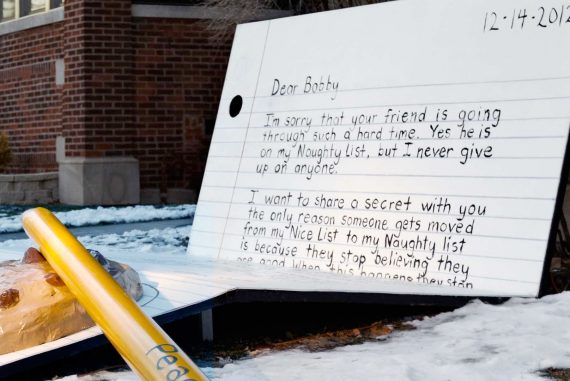 12-14-2012
Dear Bobby
I'm sorry that your friend is going
through such a hard time. Yes he is
on my Noughty List, but I never give
up on anyone.
I want to share a secret with you
the only reason someone gets moved
from my Nice List to my Naughty list
is because they stop believing they
are good. When this happens they stop